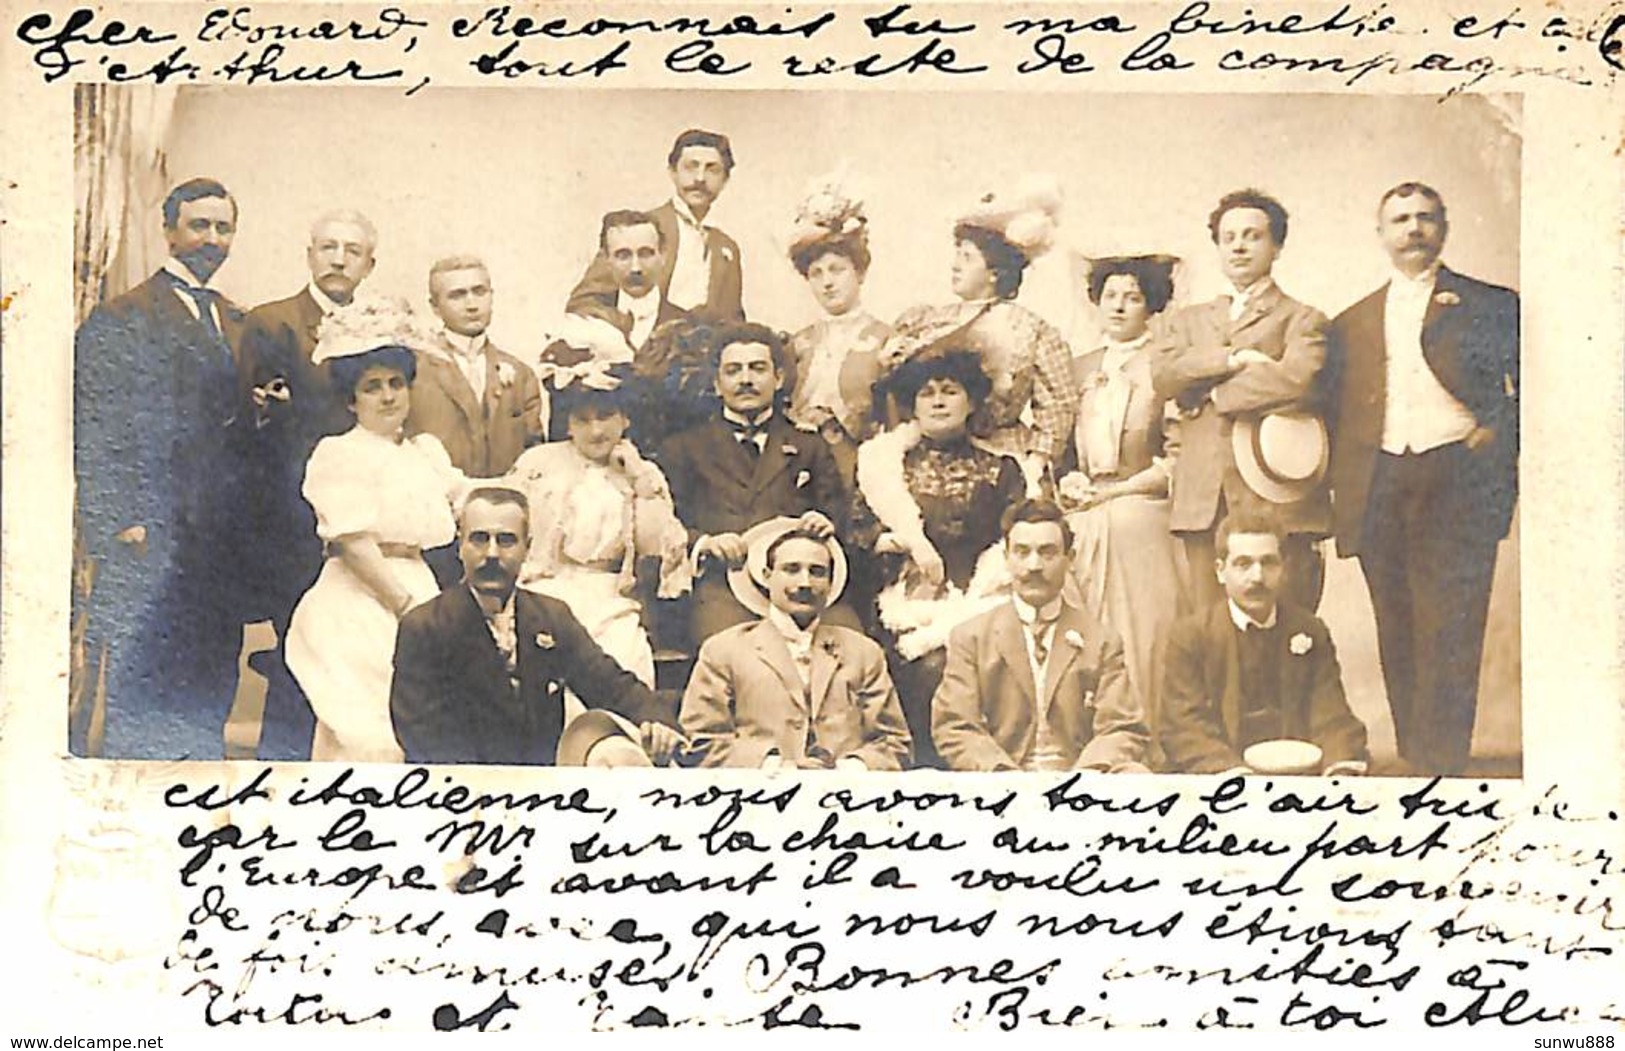 cher Edouard, Reconnais tu ma binette. et celle
d'Arthur, tout le reste de la compagnie
est italienne, nous avons tous l'air triste.
car le Mr sur la chaise au milieu part pour
l'Europe et avant il a voulu un souvenir
de nous, avec qui nous nous étions tant
de fois amusés. Bonnes amitiés à
et Bien à toi
www.delcampe.net
sunwu888